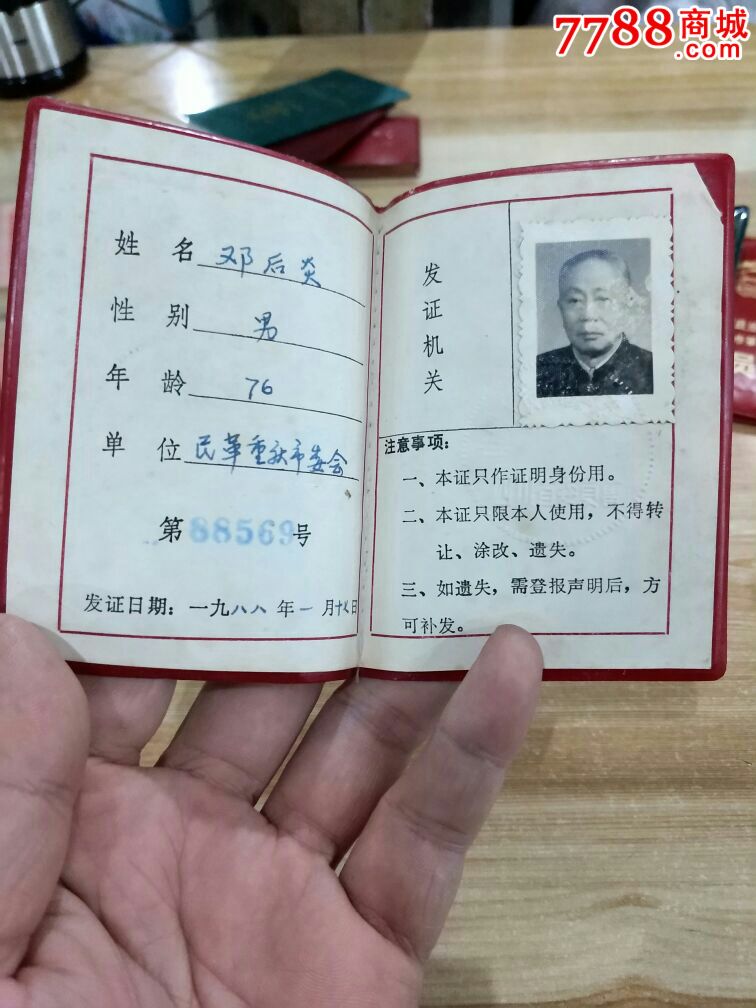 7788商城
.com
姓名 邓后炎
性别 男
年龄 76
单位 民革重庆市委会
第88569号
发证日期：一九八八年一月十八日
发证机关
注意事项：
一、本证只作证明身份用。
二、本证只限本人使用，不得转
让、涂改、遗失。
三、如遗失，需登报声明后，方
可补发。
员